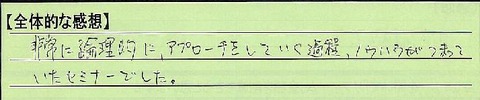 【全体的な感想】
非常に論理的に、アプローチをしていく過程、ノウハウがつまって
いたセミナーでした。